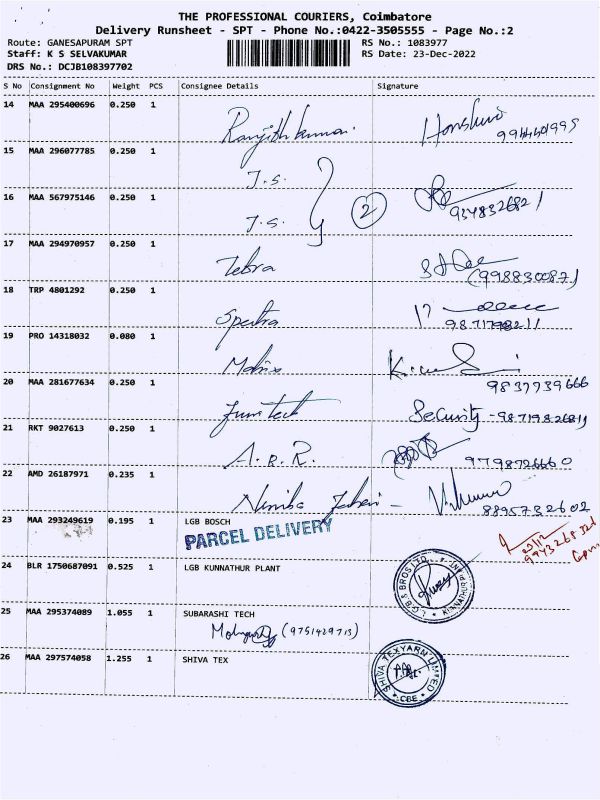 THE PROFESSIONAL COURIERS, Coimbatore
Delivery Runsheet - SPT - Phone No.:0422-3505555 - Page No.:2
Route: GANESAPURAM SPT RS No.: 1083977
Staff: K S SELVAKUMAR RS Date: 23-Dec-2022
DRS No.: DCJB108397702
S No Consignment No Weight PCS Consignee Details Signature
14 MAA 295400696 0.250 1 Ranjith kumar.
15 MAA 296077785 0.250 1 J.S.
16 MAA 567975146 0.250 1 J.S. 2 9378326821
17 MAA 294970957 0.250 1 Zebra (998830087)
18 TRP 4801292 0.250 1 Spectra
19 PRO 14318032 0.080 1 Matrix
9837739666
20 MAA 281677634 0.250 1 Security
21 RKT 9027613 0.250 1 A.R.R. 9798726660
22 AMD 26187971 0.235 1 8895732602
23 MAA 293249619 0.195 1 LGB BOSCH
PARCEL DELIVERY
23/12
24 BLR 1750687091 0.525 1 LGB KUNNATHUR PLANT
25 MAA 295374089 1.055 1 SUBARASHI TECH
(9751429713)
26 MAA 297574058 1.255 1 SHIVA TEX SHIVA TEXYARN LIMITED CBE